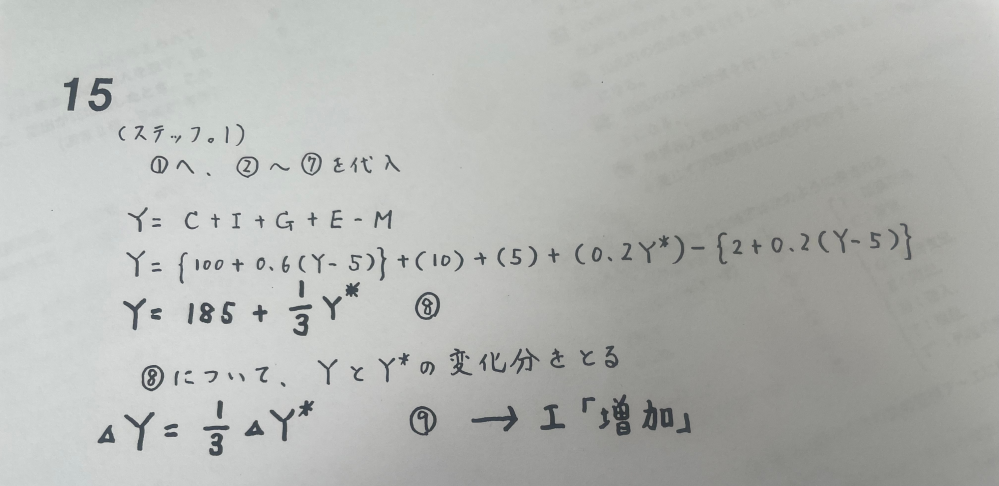 15
(ステップ。1)
①へ、②〜⑦を代入
Y = C + I + G + E - M
Y = {100 + 0.6(Y - 5)} + (10) + (5) + (0.2Y*) - {2 + 0.2(Y - 5)}
Y = 185 + 1/3 Y* ⑧
⑧について、YとY*の変化分をとる
△Y = 1/3 △Y* ⑨ → エ「増加」